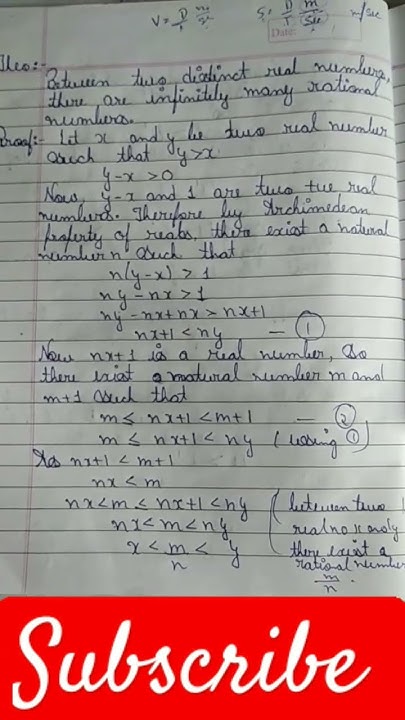 V = D/T m/s S = D/T m/sec m/sec
Date:
Theo:-
Between two distinct real numbers,
there are infinitely many rational
numbers.
Proof:- Let x and y be two real number
such that y>x
y-x >0
Now, y-x and 1 are two +ve real
numbers. Therefore by Archimedean
property of reals, there exist a natural
number 'n' such that
n(y-x) > 1
ny - nx > 1
ny - nx + nx > nx+1
nx+1 < ny — ①
Now nx+1 is a real number, so
there exist a natural number m and
m+1 such that
m ≤ nx+1 < m+1 — ②
m ≤ nx+1 < ny (using ①)
As nx+1 < m+1
nx < m
nx < m ≤ nx+1 < ny
nx < m < ny
x < m/n < y
(between two
real no x and y
there exist a
rational number
m/n.
Subscribe